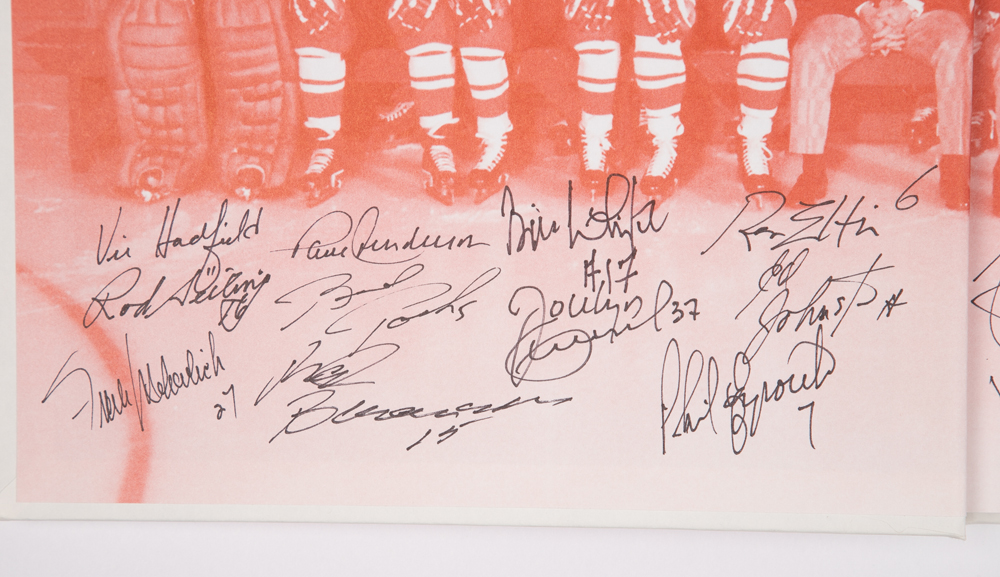 Vic Hadfield
Paul Henderson
Bill White
#17
Ron Ellis 6
Rod Seiling
Brad Park
Jocelyn
37
Ed
Johnston #
Frank Mahovlich
27
Red
Berenson
15
Phil Esposito
7